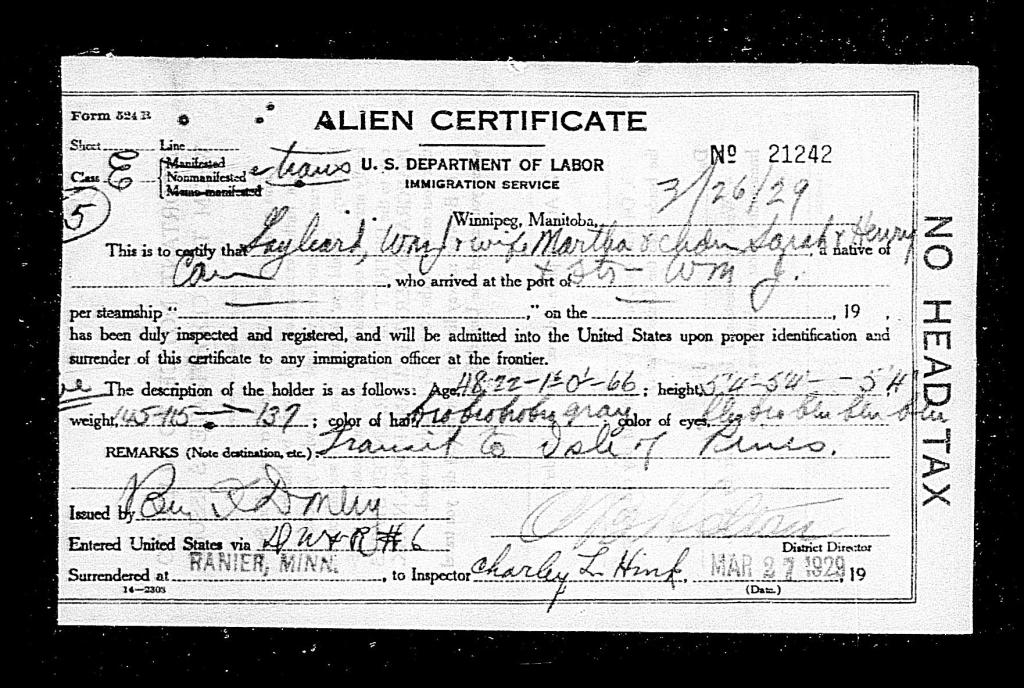 Form 524 B
ALIEN CERTIFICATE
Sheet Line
Case E Manifested Nonmanifested Mano-manifested trans
U. S. DEPARTMENT OF LABOR
IMMIGRATION SERVICE
Nº 21242
5
3/26/29
Winnipeg, Manitoba,
This is to certify that Wm J & wife Martha & chdn Sarah & Henry, a native of
Can, who arrived at the port of Wm J.
per steamship “ ,” on the , 19 ,
has been duly inspected and registered, and will be admitted into the United States upon proper identification and
surrender of this certificate to any immigration officer at the frontier.
The description of the holder is as follows: Age, 48-22-1-0-66; height, 5'4"-5'4"- - 5'4"
weight, 145-115- 137; color of hair, bro bro bro bro gray, color of eyes, blu bro blu blu blu
REMARKS (Note destination, etc.) Transit to Isle of Pines.
Issued by Ben
Entered United States via D W & P #6
District Director
Surrendered at RANIER, MINN., to Inspector Charley L. Hink, MAR 27 1929 19
14—2303
(Date.)
NO HEAD TAX